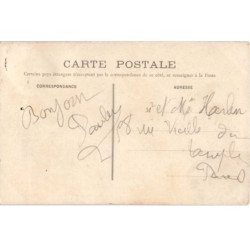 CARTE POSTALE
Certains pays étrangers n'acceptant pas la correspondance de ce côté, se renseigner à la Poste
CORRESPONDANCE
ADRESSE
Bonjour
et Mme
rue Vieille du
Temple
Paris